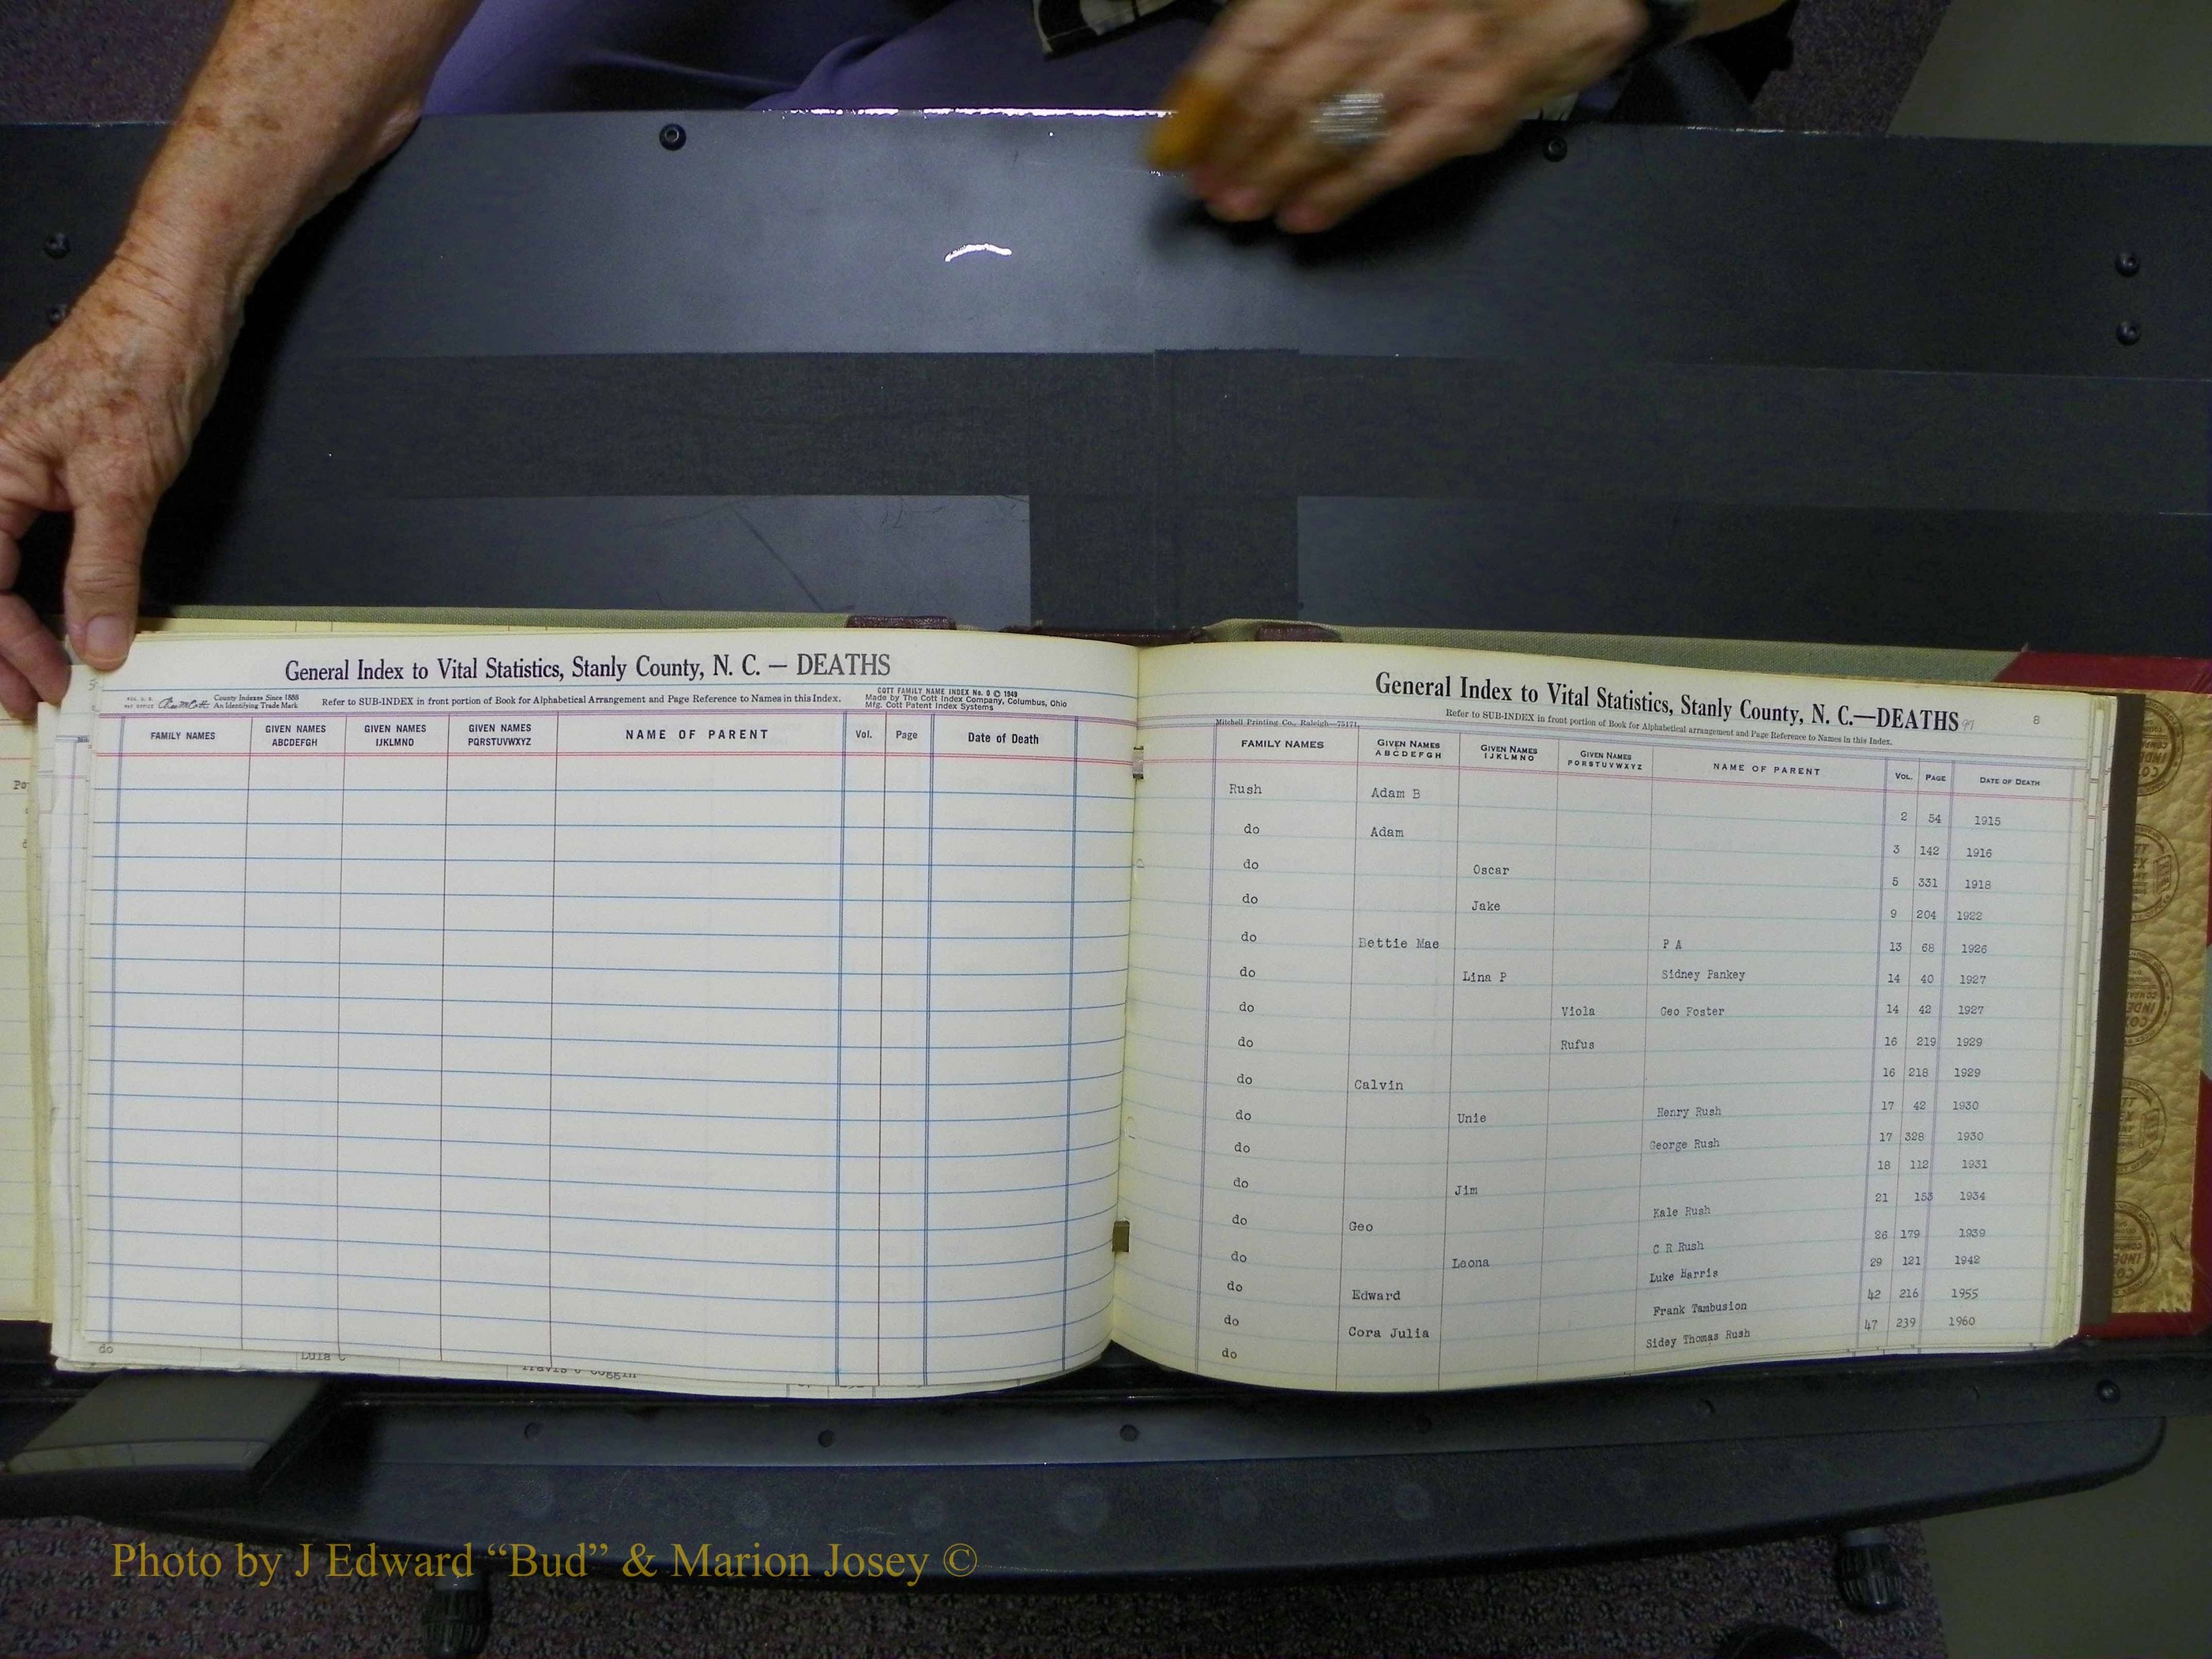 General Index to Vital Statistics, Stanly County, N. C. — DEATHS
County Indexes Since 1888
An Identifying Trade Mark
Refer to SUB-INDEX in front portion of Book for Alphabetical Arrangement and Page Reference to Names in this Index.
COTT FAMILY NAME INDEX No. 0 © 1949
Made by The Cott Index Company, Columbus, Ohio
Mfg. Cott Patent Index Systems
FAMILY NAMES GIVEN NAMES ABCDEFGH GIVEN NAMES IJKLMNO GIVEN NAMES PQRSTUVWXYZ NAME OF PARENT Vol. Page Date of Death
do Lula C Travis C Coggin
General Index to Vital Statistics, Stanly County, N. C.—DEATHS 97 8
Refer to SUB-INDEX in front portion of Book for Alphabetical arrangement and Page Reference to Names in this Index.
Mitchell Printing Co., Raleigh—75171.
FAMILY NAMES GIVEN NAMES ABCDEFGH GIVEN NAMES IJKLMNO GIVEN NAMES PQRSTUVWXYZ NAME OF PARENT VOL. PAGE DATE OF DEATH
Rush Adam B 2 54 1915
do Adam 3 142 1916
do Oscar 5 331 1918
do Jake 9 204 1922
do Bettie Mae P A 13 68 1926
do Lina P Sidney Pankey 14 40 1927
do Viola Geo Foster 14 42 1927
do Rufus 16 219 1929
do Calvin 16 218 1929
do Unie Henry Rush 17 42 1930
do George Rush 17 328 1930
do Jim 18 112 1931
do Geo Kale Rush 21 153 1934
do Leona C R Rush 26 179 1939
do Edward Luke Harris 29 121 1942
do Cora Julia Frank Tambusion 42 216 1955
do Sidey Thomas Rush 47 239 1960
Photo by J Edward “Bud” & Marion Josey ©